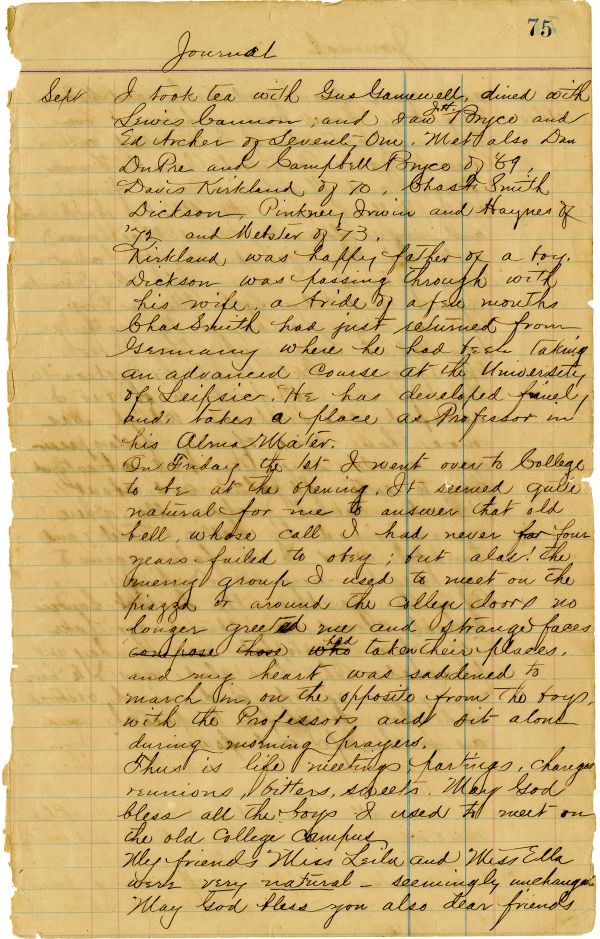 75
Journal
Sept I took tea with Gus Gamewell, dined with
Lewis Cannon; and Bryce and
Ed Archer of Seventy One. Met also Dan
DuPre and Campbell Bryce of '69,
Davis Kirkland of 70, Chas F Smith
Dickson, Pinkney Irwin and Haynes of
'72 and Webster of '73.
Kirkland was happy father of a boy.
Dickson was passing through with
his wife, a bride of a few months
Chas Smith had just returned from
Germany where he had been taking
an advanced course at the University
of Leipsic. He has developed finely
and takes a place as Professor in
his Alma Mater.
On Friday the 1st I went over to College
to be at the opening. It seemed quite
natural for me to answer that old
bell, whose call I had never for four
years failed to obey; but alas! the
merry group I used to meet on the
piazza or around the College doors no
longer greeted me and strange faces
compose those who had taken their places,
and my heart was saddened to
march in, on the opposite from the boys,
with the Professors and sit alone
during morning prayers.
Thus is life meetings, partings, changes
reunions, bitters, sweets. May God
bless all the boys I used to meet on
the old College Campus.
My friends Miss Leila and Miss Ella
were very natural - seemingly unchanged.
May God bless you also dear friends